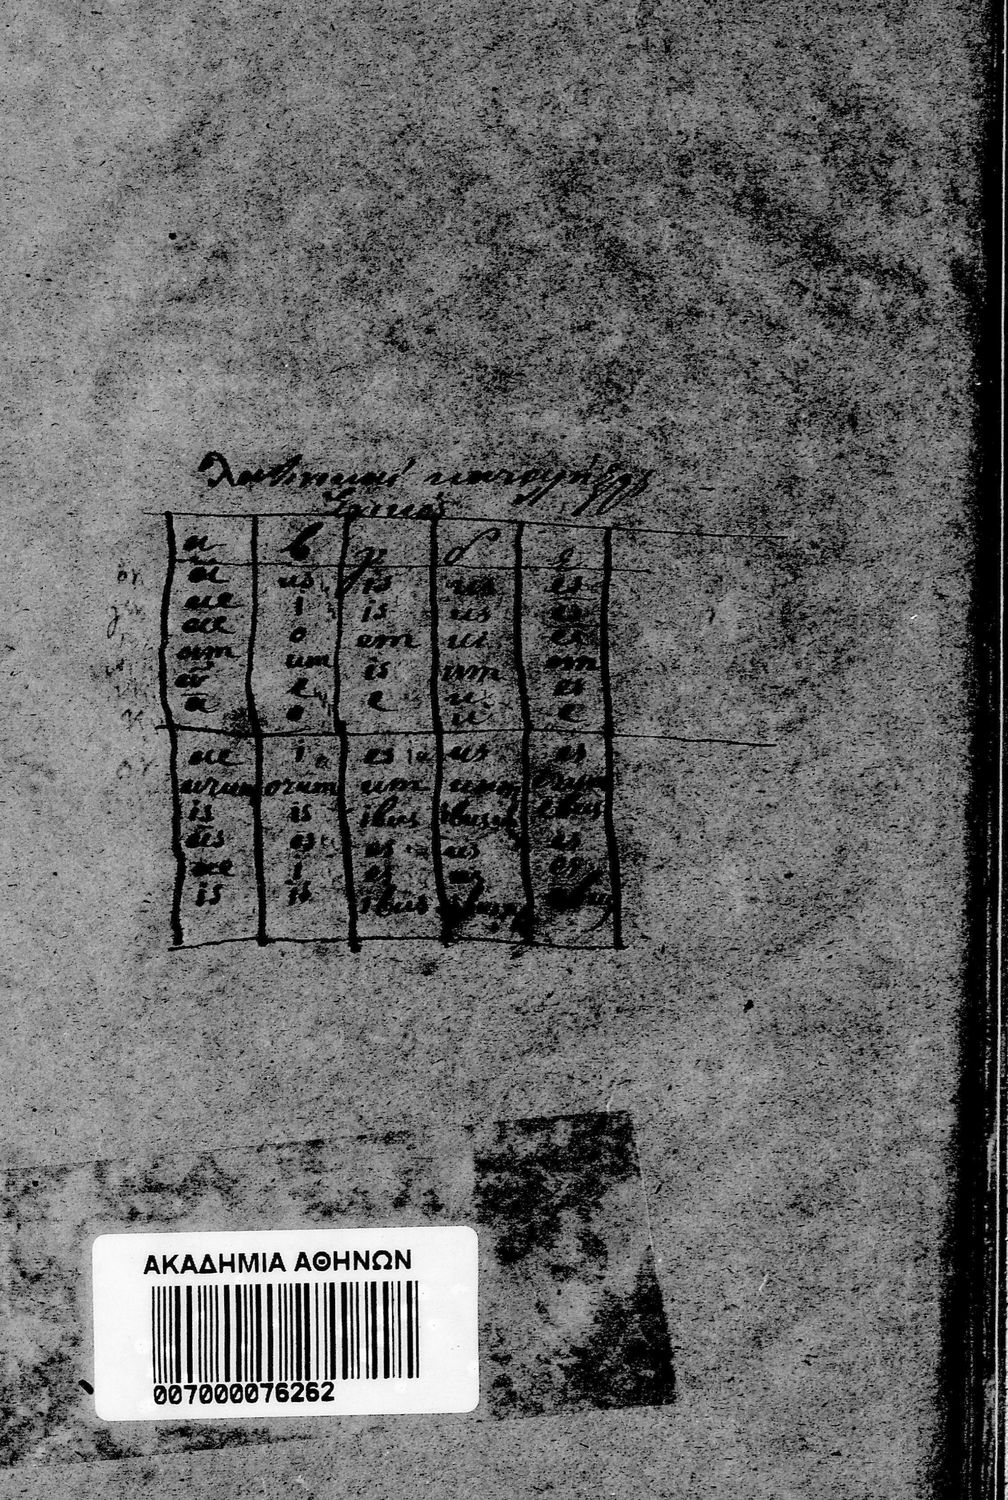 Λατινικαί καταλήξεις
α β γ δ ε
a us is us es
ae i is us ei
ae o ui ei
am um em um em
a e is us es
a o e u e
ae i es us es
arum orum um uum erum
is is ibus ibus ebus
as os es us es
ae i es us es
is is ibus ibus ebus
ΑΚΑΔΗΜΙΑ ΑΘΗΝΩΝ
007000076262